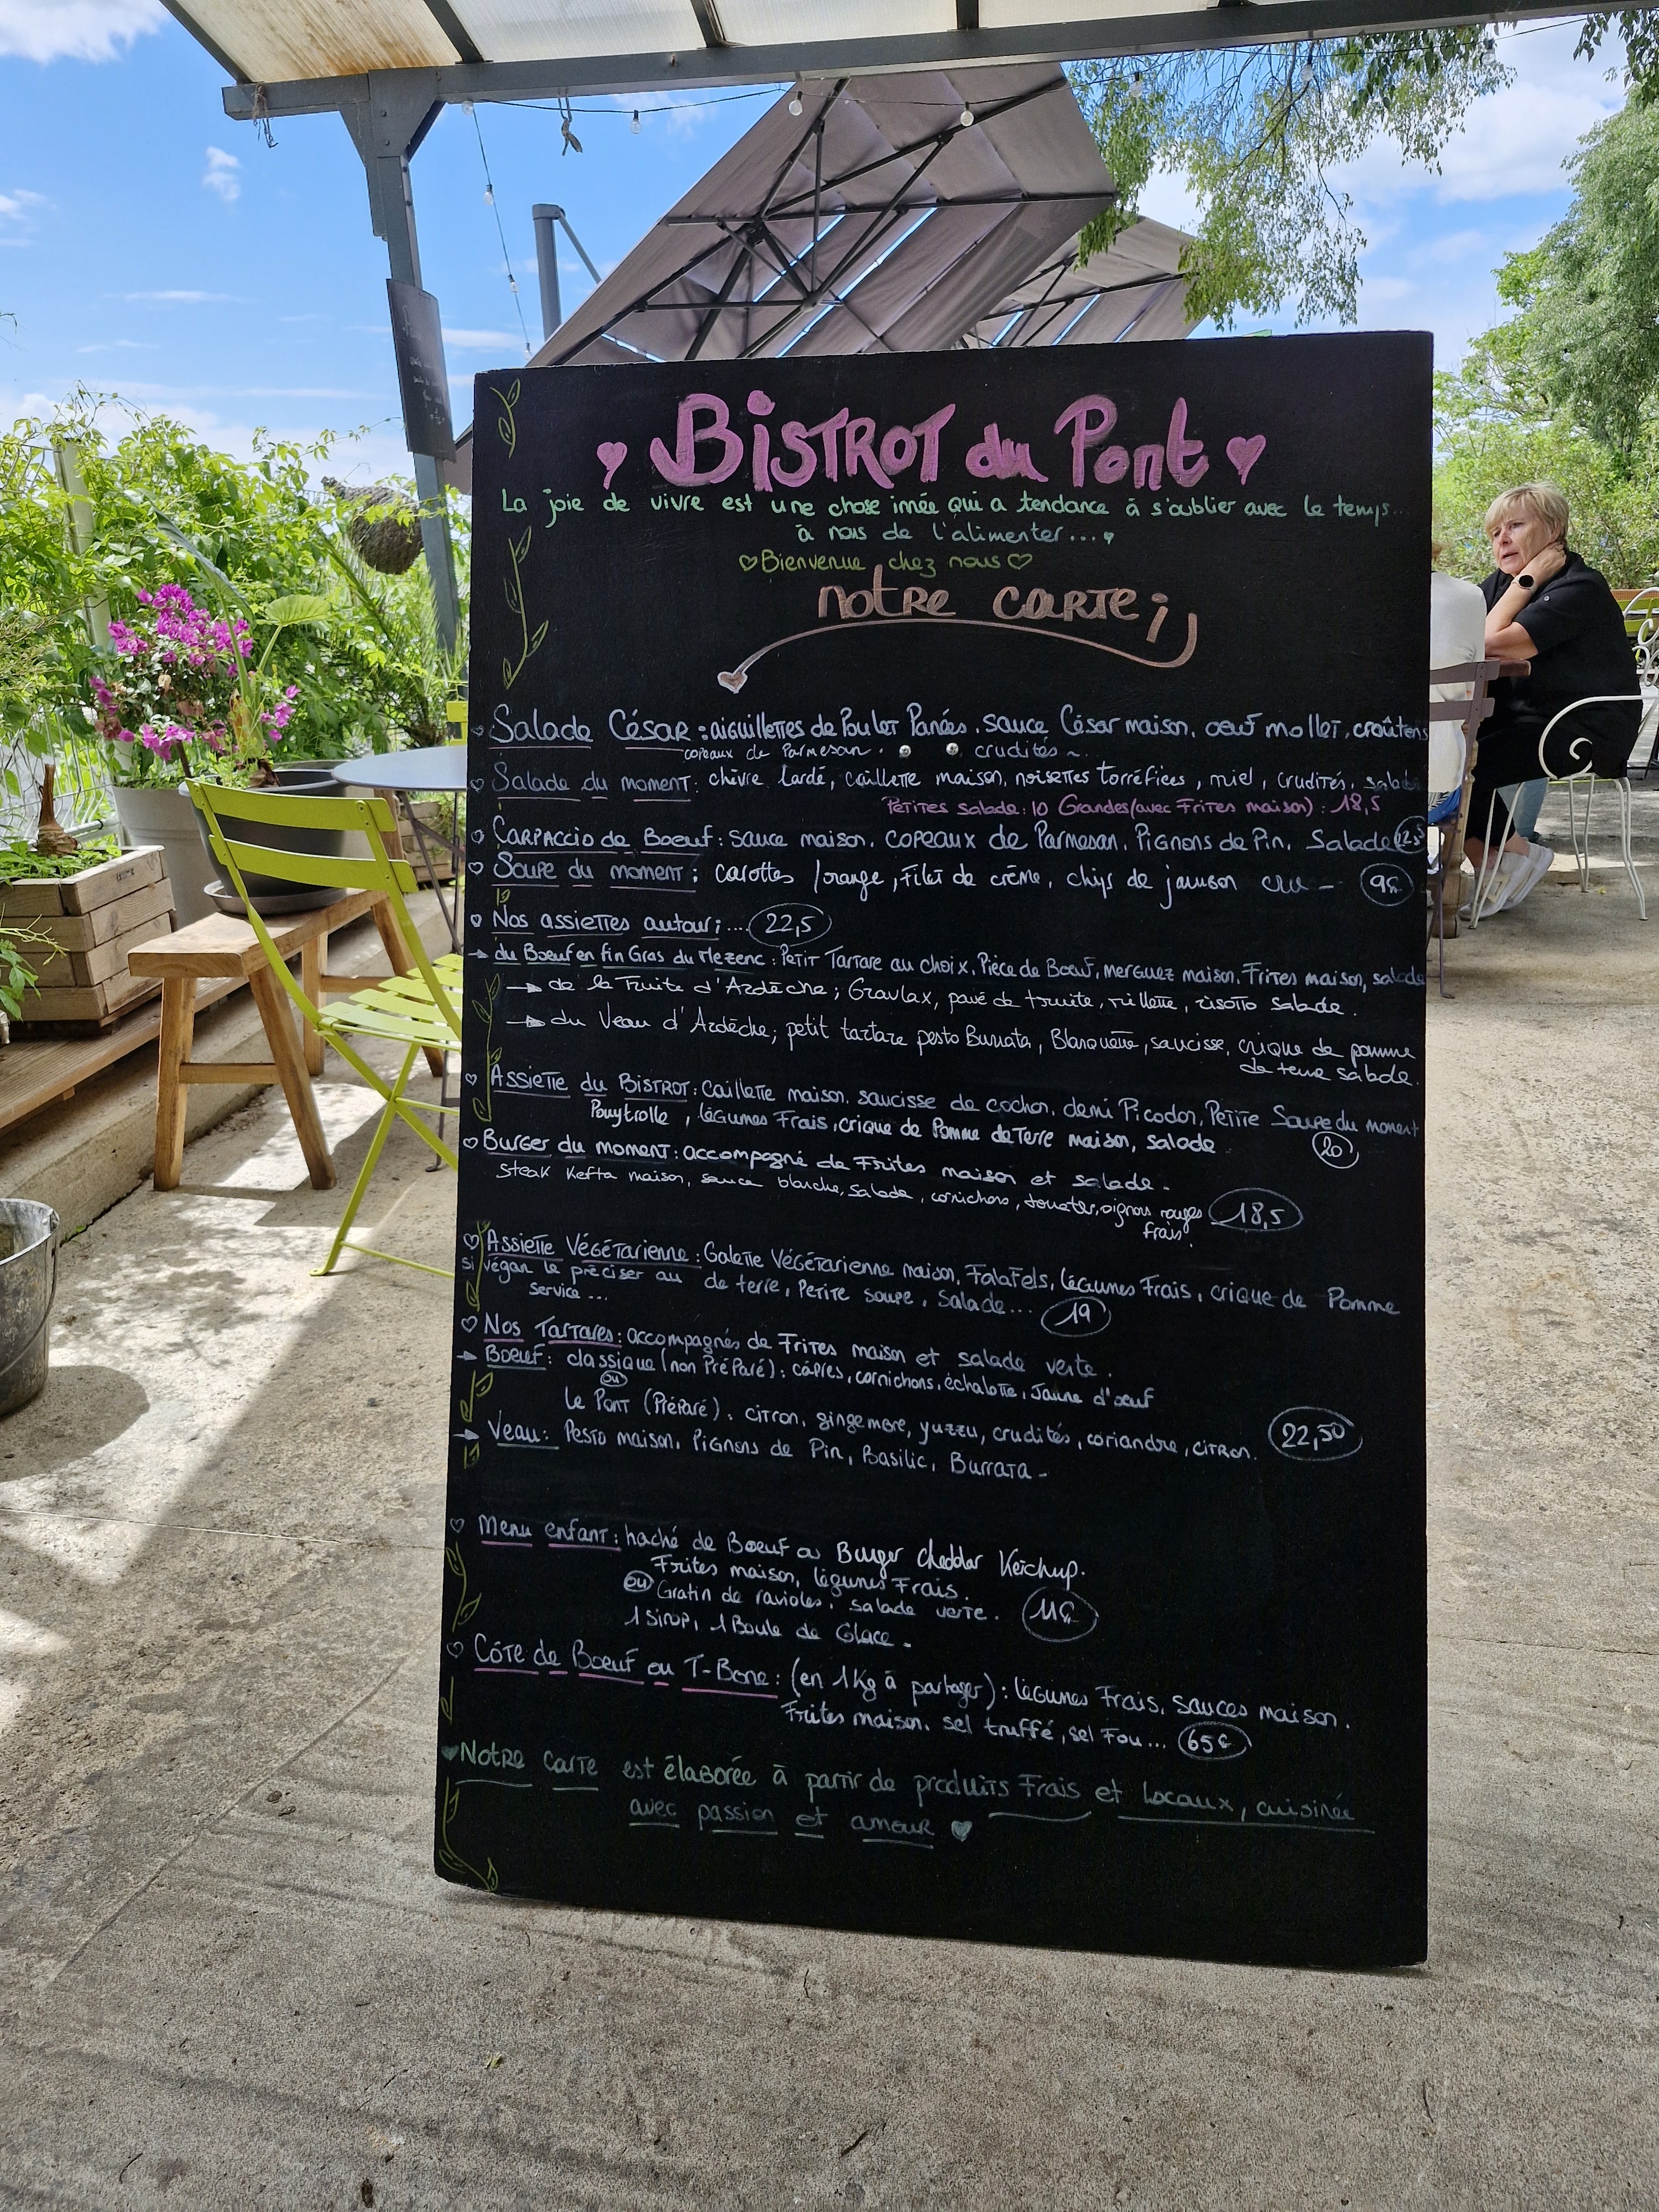 BISTROT du Pont
La joie de vivre est une chose innée qui a tendance à s'oublier avec le temps...
à nous de l'alimenter...
Bienvenue chez nous
notre carte;
Salade César : aiguillettes de Poulet Panées. sauce César maison, oeuf mollet, croûtons
copeaux de Parmesan. crudités
Salade du moment: chèvre lardé, caillette maison, noisettes torréfiées, miel, crudités, salade
Petites salade: 10 Grandes(avec Frites maison): 18,5
Carpaccio de Boeuf: sauce maison, copeaux de Parmesan, Pignons de Pin, Salade
Soupe du moment; carottes /orange, filet de crème, chips de jambon cru - 9€
Nos assiettes autour; ... 22,5
du Boeuf en fin Gras du Mezenc : Petit Tartare au choix, Pièce de Boeuf, merguez maison, Frites maison, salade
de la Truite d'Ardèche; Gravlax, pavé de truite, rillette, risotto salade.
du Veau d'Ardèche; petit tartare pesto Burrata, Blanquette, saucisse, crique de pomme
de terre salade.
Assiette du Bistrot: Caillette maison, saucisse de cochon, demi Picodon, Petite Soupe du moment
Pouytrolle, légumes Frais, crique de Pomme de Terre maison, salade 20
Burger du moment: accompagné de Frites maison et salade.
Steak Kefta maison, sauce blanche, salade, cornichons, tomates, oignons rouges 18,5
frais.
Assiette Végétarienne: Galette Végétarienne maison, Falafels, légumes Frais, crique de Pomme
si végan le préciser au de terre, Petite soupe, Salade... 19
service ...
Nos Tartares: accompagnés de Frites maison et salade verte.
Boeuf: classique (non Préparé): câpres, cornichons, échalotte, Jaune d'oeuf
ou
Le Pont (Préparé). citron, gingembre, yuzzu, crudités, coriandre, citron. 22,50
Veau: Pesto maison, Pignons de Pin, Basilic, Burrata -
Menu enfant: haché de Boeuf ou Burger cheddar Ketchup.
Frites maison, légumes Frais.
ou Gratin de ravioles, salade verte. 11€
1 Sirop, 1 Boule de Glace -
Côte de Boeuf ou T-Bone: (en 1Kg à partager): légumes Frais, sauces maison.
Frites maison, sel truffé, sel Fou... 65€
Notre carte est élaborée à partir de produits Frais et Locaux, cuisinée
avec passion et amour